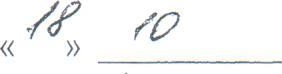 «18» 10